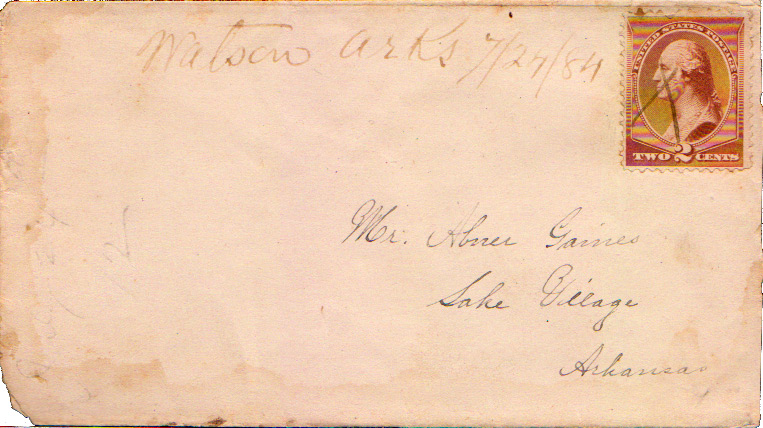 Watson Arks 7/24/84
UNITED STATES POSTAGE
TWO 2 CENTS
Mr. Abner Gaines
Lake Village
Arkansas